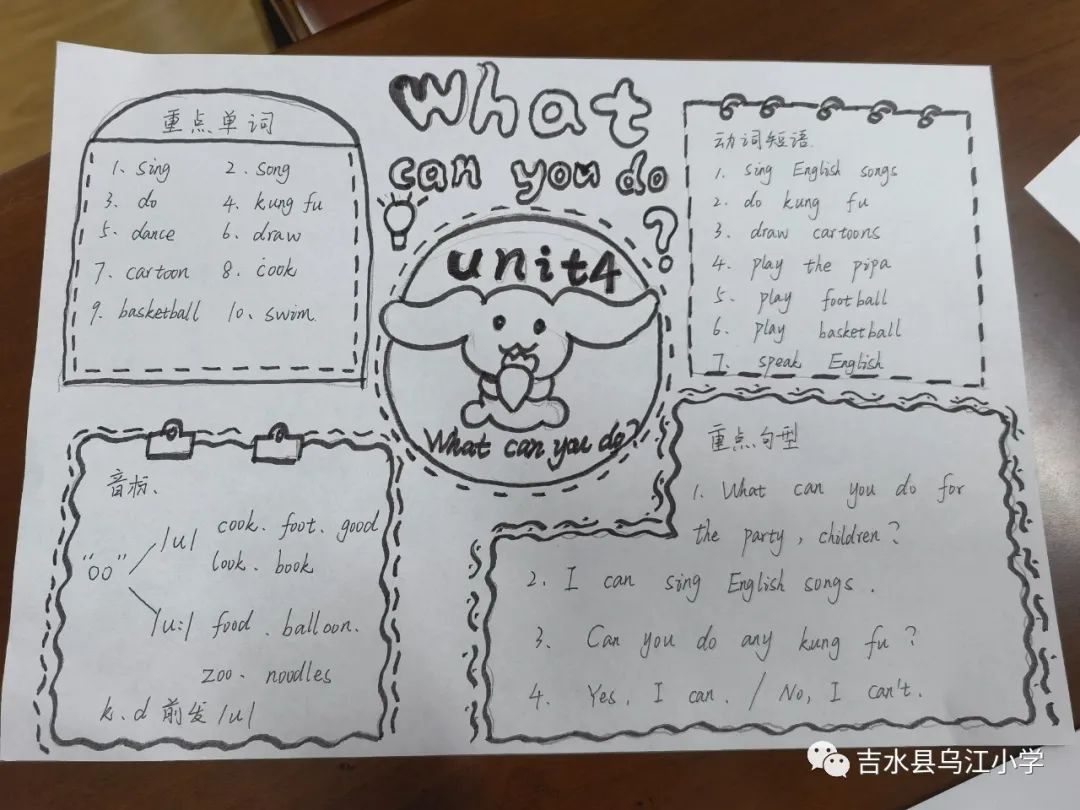 What
can you do
?
unit4
What can you do?
重点单词
1. sing 2. song
3. do 4. kung fu
5. dance 6. draw
7. cartoon 8. cook
9. basketball 10、swim.
动词短语.
1. sing English songs
2. do kung fu
3. draw cartoons
4. play the pipa
5. play football
6. play basketball
7. speak English
音标、
"oo"
/u/ cook. foot. good
look. book
/u:/ food. balloon.
zoo. noodles
k. d 前发/u/
重点句型
1. What can you do for
the party, children?
2. I can sing English songs.
3. Can you do any kung fu?
4. Yes, I can. / No, I can't.
吉水县乌江小学